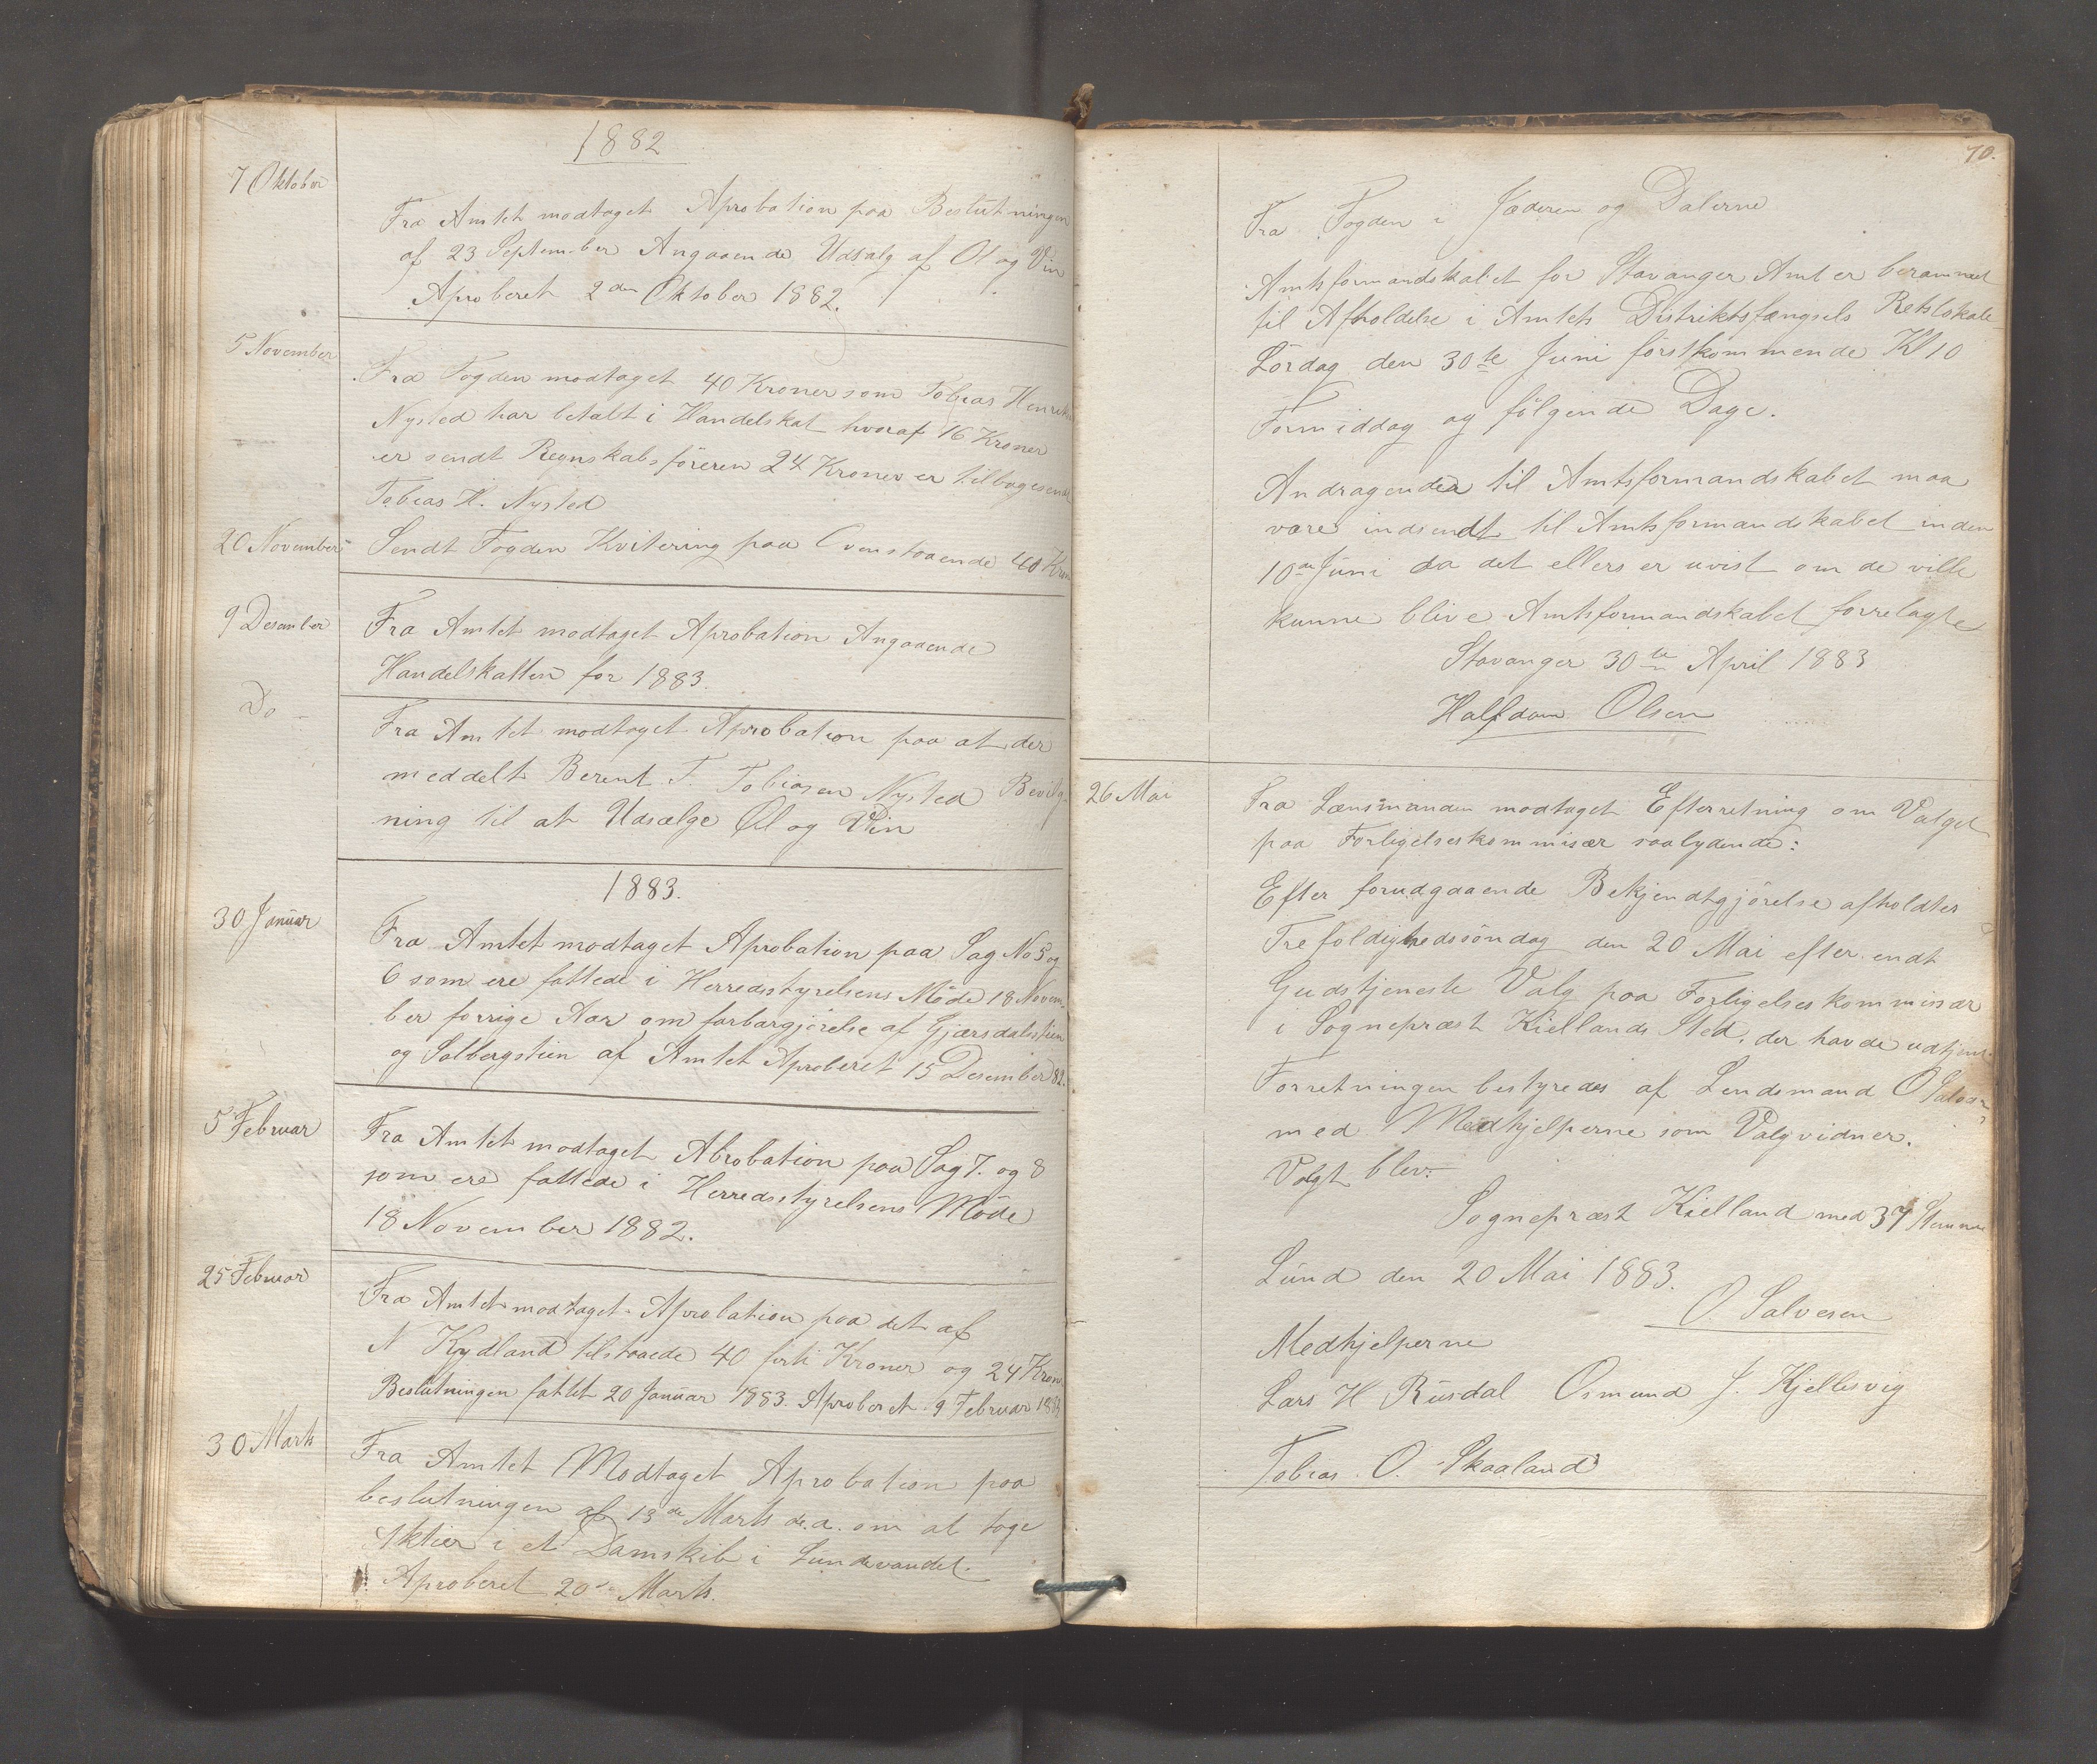 1882
7 Oktober
Fra Amtet modtaget Aprobation paa Beslutningen
af 23 September Angaaende Udsalg af Øl og Vin
Aproberet 2den Oktober 1882.
5 November
Fra Fogden modtaget 40 Kroner som Tobias Henrik
Nysted har betalt i Handelskat hvoraf 16 Kroner
er sendt Regnskabsföreren 24 Kroner er tilbagesendt
Tobias H. Nysted
20 November
Sendt Fogden Kvitering paa Ovenstaaende 40 Kron
9 Desember
Fra Amtet modtaget Aprobation Angaaende
Handelskatten for 1883.
Do –
Fra Amtet modtaget Aprobation paa at der
meddelt Berent T. Tobiasen Nysted Bevilg-
ning til at Udsælge Øl og Vin
1883.
30 Januar
Fra Amtet modtaget Aprobation paa Sag No 5 og
6 som ere fattede i Herredsstyrelsens Möde 18 Novem-
ber forrige Aar om farbargjörelse af Gjærsdalsstien
og Solbergstien af Amtet Aproberet 15 Desember 82.
5 Februar
Fra Amtet modtaget Abrobation paa Sag 7. og 8
som ere fattede i Herredsstyrelsens Möde
18 November 1882.
25 Februar
Fra Amtet modtaget Aprobation paa det af
N Kydland tilstaaede 40 forti Kroner og 24 Kron
Beslutningen fattet 20 Januar 1883. Aproberet 9 Februar 1883
30 Marts
Fra Amtet Modtaget Aprobation paa
beslutningen af 13de Marts d.a. om at tage
Aktier i et Damskib i Lundevandet.
Aproberet 20 Marts.
70.
Fra Fogden i Jæderen og Dalerne
Amtsformandskabet for Stavanger Amt er berammet
til Afholdelse i Amtets Distriktsfængsels Retslokale
Lördag den 30te Juni förstkommende Kl 10
Formiddag og fölgende Dage.
Andragender til Amtsformandskabet maa
være indsendt til Amtsformandskabet inden
10de Juni da det ellers er uvist om de ville
kunne blive Amtsformandskabet forrelagte
Stavanger 30te April 1883
Halfdan Olsen
26 Mai
Fra Lænsmanden modtaget Efterretning om Valget
paa Forligelseskommisær saalydende:
Efter forudgaaende Bekjendtgjörelse afholdtes
Trefoldighedssöndag den 20 Mai efter endt
Gudstjeneste Valg paa Forligelseskommissær
i Sognepræst Kiellands Sted, der havde udtjent.
Forretningen bestyredes af Lendsmand O Salvesen
med Medhjelperne som Valgvidner.
Valgt blev:
Sognepræst Kielland med 37 Stemmer
Lund den 20 Mai 1883.
O. Salvesen
Medhjelperne
Lars H Rusdal Osmund J. Kjellesvig
Tobias O. Skaaland